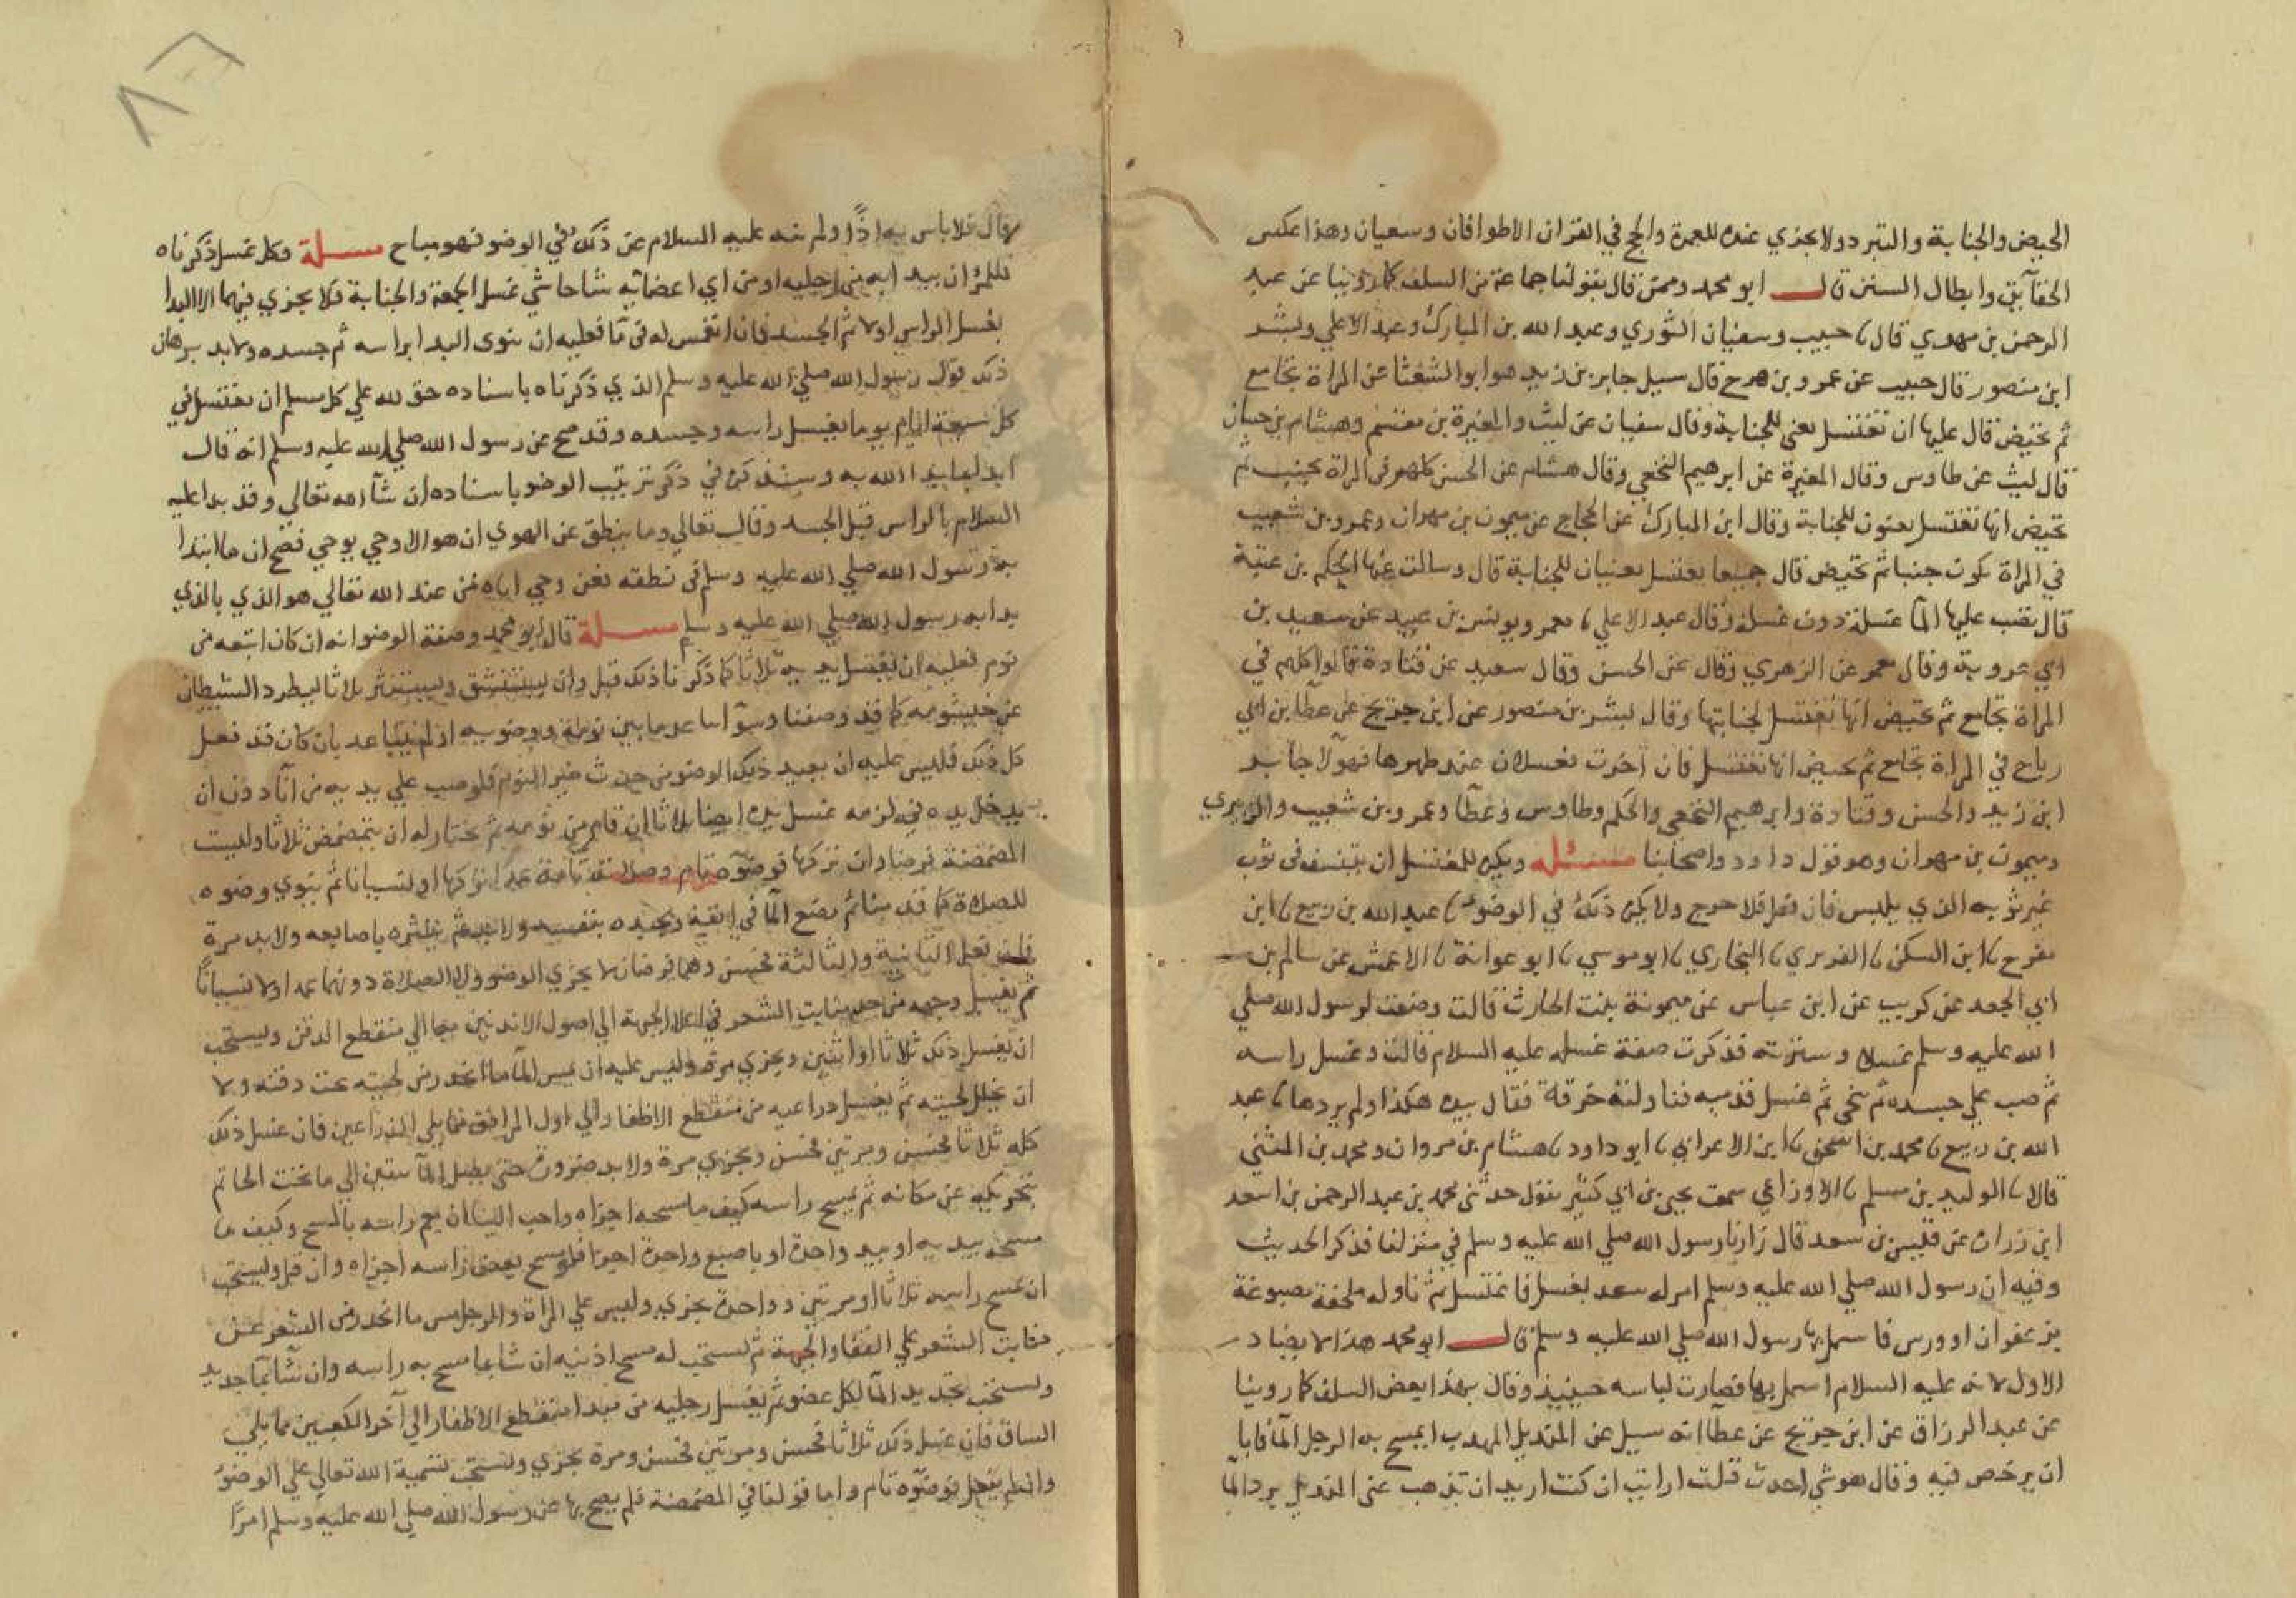 الحيض والجنابة والتبرد ولا يجزي عنده للعمرة والحج في القران الا طوافان وسعيان وهذا عكس
الحقآيق وابطال السنن قال ابو محمد وممن قال بقولنا جماعة من السلف كما روينا عن عبد
الرحمن بن مهدي قال ثا حبيب وسفيان الثوري وعبد الله بن المبارك وعبد الاعلي وبشر
ابن منصور قال حبيب عن عمرو بن هرم قال سيل جابر بن زيد هو ابو الشعثا عن المراة تجامع
ثم تحيض قال عليها ان تغتسل يعني للجنابة وقال سفيان عن ليث والمغيرة بن مقسم وهشام بن حسان
قال ليث عن طاوس وقال المغيرة عن ابرهيم النخعي وقال هشام عن الحسن كلهم في المراة تجنب ثم
تحيض انها تغتسل يعنون للجنابة وقال ابن المبارك عن الحجاج عن ميمون بن مهران وعمرو بن شعيب
في المراة تكون جنبا ثم تحيض قال جميعا تغتسل يعنيان للجنابة قال وسالت عنها الحكم بن عتبة
قال تصب عليها المآ غسلة دون غسلة وقال عبد الاعلي ثا معمر ويونس بن عبيد عن سعيد بن
ابي عروبة وقال معمر عن الزهري وقال عن الحسن وقال سعيد عن قتادة قالوا كلهم في
المراة تجامع ثم تحيض انها تغتسل لجنابتها وقال بشر بن منصور عن ابن جريج عن عطا بن ابي
رباح في المراة تجامع ثم تحيض انها تغتسل فان اخرت فغسلان عند طهرها فهولا جابر
ابن زيد والحسن وقتادة وابرهيم النخعي والحكم وطاوس وعطا وعمرو بن شعيب والزهري
وميمون بن مهران وهو قول داود واصحابنا مسئله ويكره للمغتسل ان يتنشف في ثوب
غير ثوبه الذي يلبس فان فعل فلا حرج ولا يكره ذلك في الوضو ثا عبد الله بن ربيع ثا ابن
مفرج ثا ابن السكن ثا الفربري ثا البخاري ثا موسي ثا ابو عوانة ثا الاعمش عن سالم بن
ابي الجعد عن كريب عن ابن عباس عن ميمونة بنت الحارث قالت وضعت لرسول الله صلي
الله عليه وسلم غسلا وسترته فذكرت صفة غسله عليه السلام قالت وغسل راسه
ثم صب علي جسده ثم تنحي ثم غسل قدميه فناولته خرقة فقال بيده هكذا ولم يردها ثا عبد
الله بن ربيع ثا محمد بن اسحق ثا ابن الاعرابي ثا ابو داود ثا هشام بن مروان ومحمد بن المثني
قالا ثا الوليد بن مسلم ثا الاوزاعي سمعت يحيي بن ابي كثير يقول حدثني محمد بن عبد الرحمن بن اسعد
ابن زرارة عن قيس بن سعد قال زارنا رسول الله صلي الله عليه وسلم في منزلنا فذكر الحديث
وفيه ان رسول الله صلي الله عليه وسلم امر له سعد بغسل فاغتسل ثم ناوله ملحفة مصبوغة
بزعفران او ورس فاشتمل بها رسول الله صلي الله عليه وسلم قال ابو محمد هذا لا يضاد
الاول لانه عليه السلام اشتمل بها فصارت لباسه حينيذ وقال بهذا بعض السلف كما روينا
عن عبد الرزاق عن ابن جريج عن عطا انه سيل عن المنديل المهدب ايمسح به الرجل المآ فابا
ان يرخص فيه وقال هو شي احدث قلت ارايت ان كنت اريد ان تذهب عني المنديل برد المآ
قال فلا باس به اذًا ولم ينه عليه السلام عن ذلك في الوضو فهو مباح مسلة وكل غسل ذكرناه
فللمرء ان يبدا به من رجليه او من اي اعضائه شا حاشي غسل الجمعة والجنابة فلا يجزي فيهما الا البدا
بغسل الراس اولا ثم الجسد فان انغمس له في مآ فعليه ان ينوي البدا براسه ثم جسده ولا بد برهان
ذلك قول رسول الله صلي الله عليه وسلم الذي ذكرناه باسناده حق لله علي كل مسلم ان يغتسل في
كل سبعة ايام يوما يغسل راسه وجسده وقد صح عن رسول الله صلي الله عليه وسلم انه قال
ابدا بما بدا الله به وسنذكره في ذكر ترتيب الوضو باسناده ان شآ الله تعالي وقد بدا عليه
السلام بالراس قبل الجسد وقال تعالي وما ينطق عن الهوي ان هو الا وحي يوحي فصح ان ما ابتدا
به رسول الله صلي الله عليه وسلم في نطقه فعن وحي اتاه من عند الله تعالي هو الذي بدا بالذي
بدا به رسول الله صلي الله عليه وسلم مسلة قال ابو محمد وصفة الوضو انه ان كان انتبه من
نوم فعليه ان يغسل يديه ثلاثا كما ذكرنا ذلك قبل وان يستنشق ويستنثر ثلاثا ليطرد الشيطان
عن خيشومه كما قد وصفنا وسوآ تباعد ما بين نومه ووضوءه او لم يتباعد فان كان قد فعل
كل ذلك فليس عليه ان يعيد ذلك الوضو من حدث غير النوم فلو صب علي يديه من انآ دون ان
يدخل يده فيه لزمه غسل يده ايضا ثلاثا ان قام من نومه ثم نختار له ان يتمضمض ثلاثا وليست
المضمضة فرضا وان تركها فوضوه تام وصلاته تامة عمدا تركها او نسيانا ثم ينوي وضوه
للصلاة كما قد بينا ثم يضع المآ في انفه ويجبده بنفسه ولا بد ثم ينثره باصابعه ولا بد مرة
فان فعل الثانية والثالثة فحسن وهما فرضان لا يجزي الوضو ولا الصلاة دونهما عمدا ولا نسيانًا
ثم يغسل وجهه من حد منابت الشعر في اعلا الجبهة الي اصول الاذنين معا الي منقطع الذقن ويستحب
ان يغسل ذلك ثلاثا او اثنين ويجزي مرة وليس عليه ان يمس المآ ما انحدر من لحيته تحت ذقنه ولا
ان يخلل لحيته ثم يغسل ذراعيه من منقطع الاظفار الي اول المرافق مما يلي الذراعين فان غسل ذلك
كله ثلاثا فحسن ومرتين فحسن ويجزي مرة ولا بد ضرورة حتي يصل المآ بيقين الي ما تحت الخاتم
بتحريكه عن مكانه ثم يمسح راسه كيف ما مسحه اجزاه واحب الينا ان يعم راسه بالمسح وكيف ما
مسحه بيديه او بيد واحدة او باصبع واحدة اجزا فلو مسح بعض راسه اجزاه وان قل ويستحب
ان يمسح راسه ثلاثا او مرتين وواحدة تجزي وليس علي المراة والرجل مس ما انحدر من الشعر عن
منابت الشعر علي القفا والجبهة ثم يستحب له مسح اذنيه ان شا بما مسح به راسه وان شآ بمآ جديد
ويستحب تجديد المآ لكل عضو ثم يغسل رجليه من مبدا منقطع الاظفار الي آخر الكعبين مما يلي
الساق فان غسل ذلك ثلاثا فحسن ومرتين فحسن ومرة يجزي ويستحب تسمية الله تعالي علي الوضوء
وان لم يفعل فوضوه تام واما قولنا في المضمضة فلم يصح بها عن رسول الله صلي الله عليه وسلم امرًا